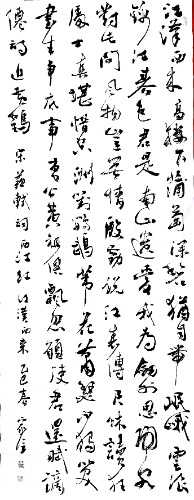 江漢西來高樓下蒲萄深碧猶自帶岷峨雪浪
錦江春色君是南山遺愛守我為劍外思歸客
對此間風物豈無情殷勤說江表傳君休讀狂
處士真堪惜空洲對鸚鵡葦花蕭瑟不獨笑
書生爭底事曹公黃祖俱飄忽願使君還賦謫
仙詩追黃鶴 宋蘇軾詞 滿江紅 江漢西來 乙巳春